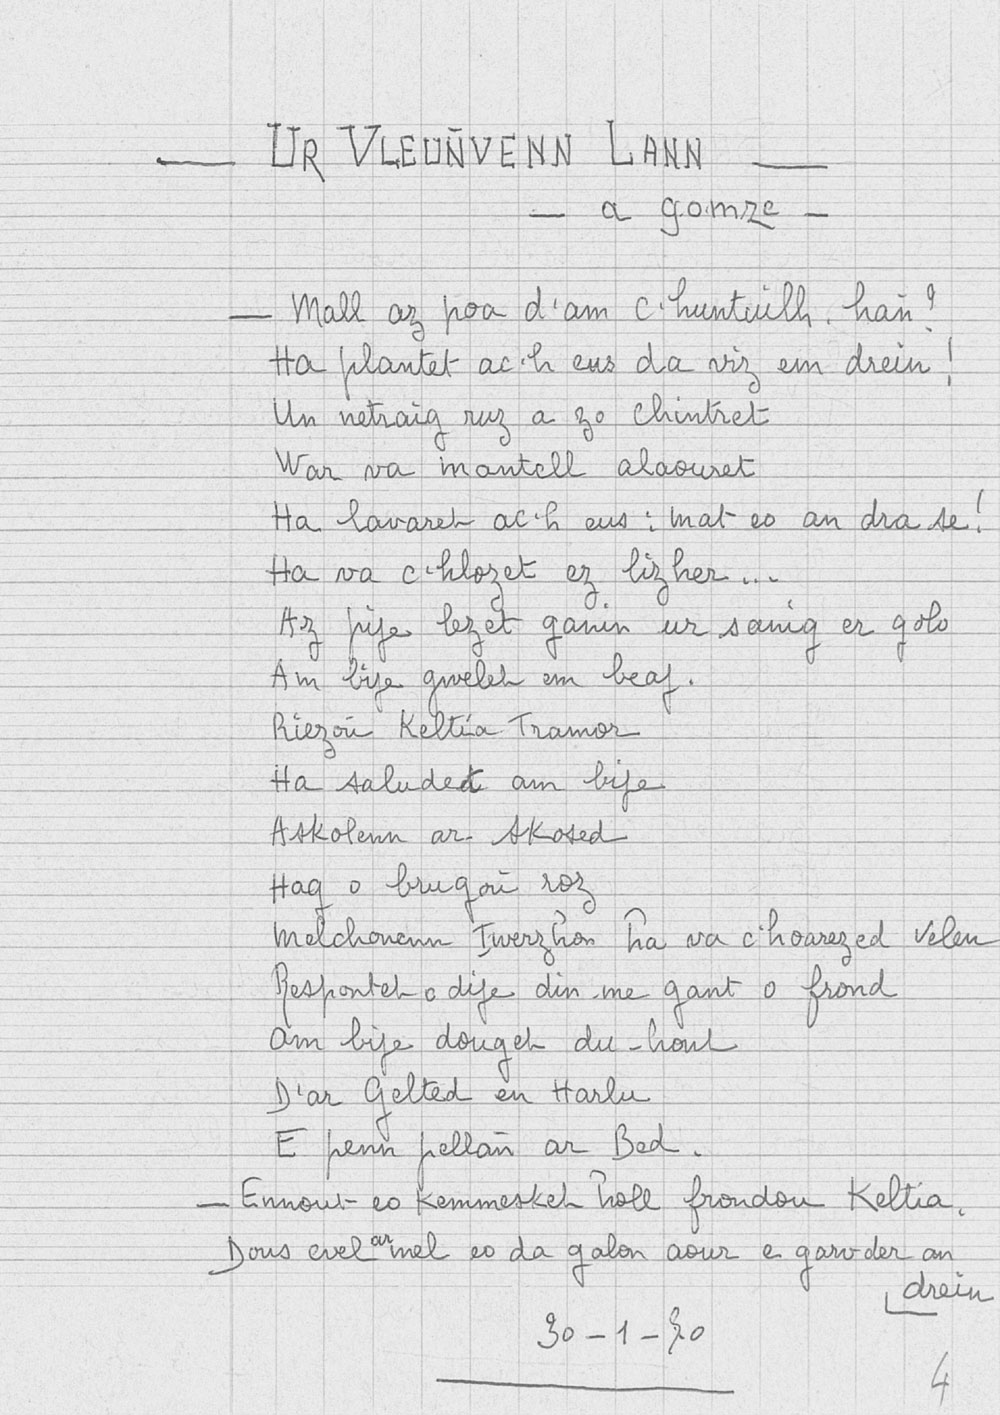 — UR VLEUÑVENN LANN —
— a gomze —
— Mall az poa d'am c'huntuilh, hañ ?
Ha plantet ac'h eus da viz em drein !
Un netraig ruz a zo chintret
War va mantell alaouret
Ha lavaret ac'h eus : mat eo an dra se !
Ha va c'hlozet ez lizher...
Az pije lezet ganin ur sanig er golo
Am bije gwelet em beaj.
Riezoù Keltia Tramor
Ha saludet am bije
Askolenn ar Skosed
Hag o brugoù roz
Melchonenn Iwerzhon ha va c'hoarezed velen
Respontet o dije din-me gant o frond
Am bije douget du-hont
D'ar Gelted en Harlu
E penn pellañ ar Bed.
— Ennout eo kemmesket holl frondou Keltia.
Dous evel ar mel eo da galon aour e garvder an
drein
30-1-70
4